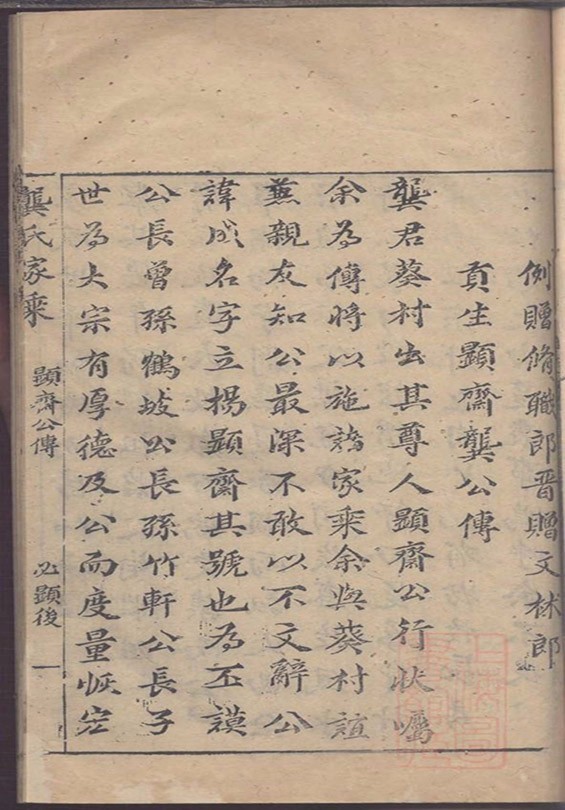 例贈脩職郎晋贈文林郎
貢生顯齋龔公傳
龔君葵村出其尊人顯齋公行狀囑
余為傳將以施諸家乘余與葵村誼
兼親友知公最深不敢以不文辭公
諱成名字立揚顯齋其號也為丕謨
公長曾孫鶴坡公長孫竹軒公長子
世為大宗有厚德及公而度量恢宏
龔氏家乘
顯齋公傳
必顯後
一